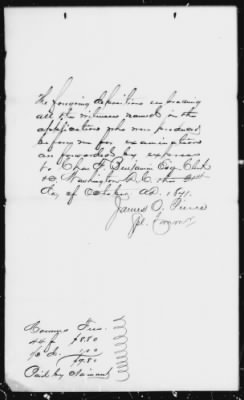 The foregoing depositions embracing
all the witnesses named in the
application who were produced
before me for examination
are forwarded by express
to Chas F. Benjamin Esq Clerk
&c Washington D.C. this 21st
day of October A.D. 1871.
James O. Pierce
Spl. Commr
Commrs Fees.
44 f $8.80
1.00
$9.80
Paid by Claimant